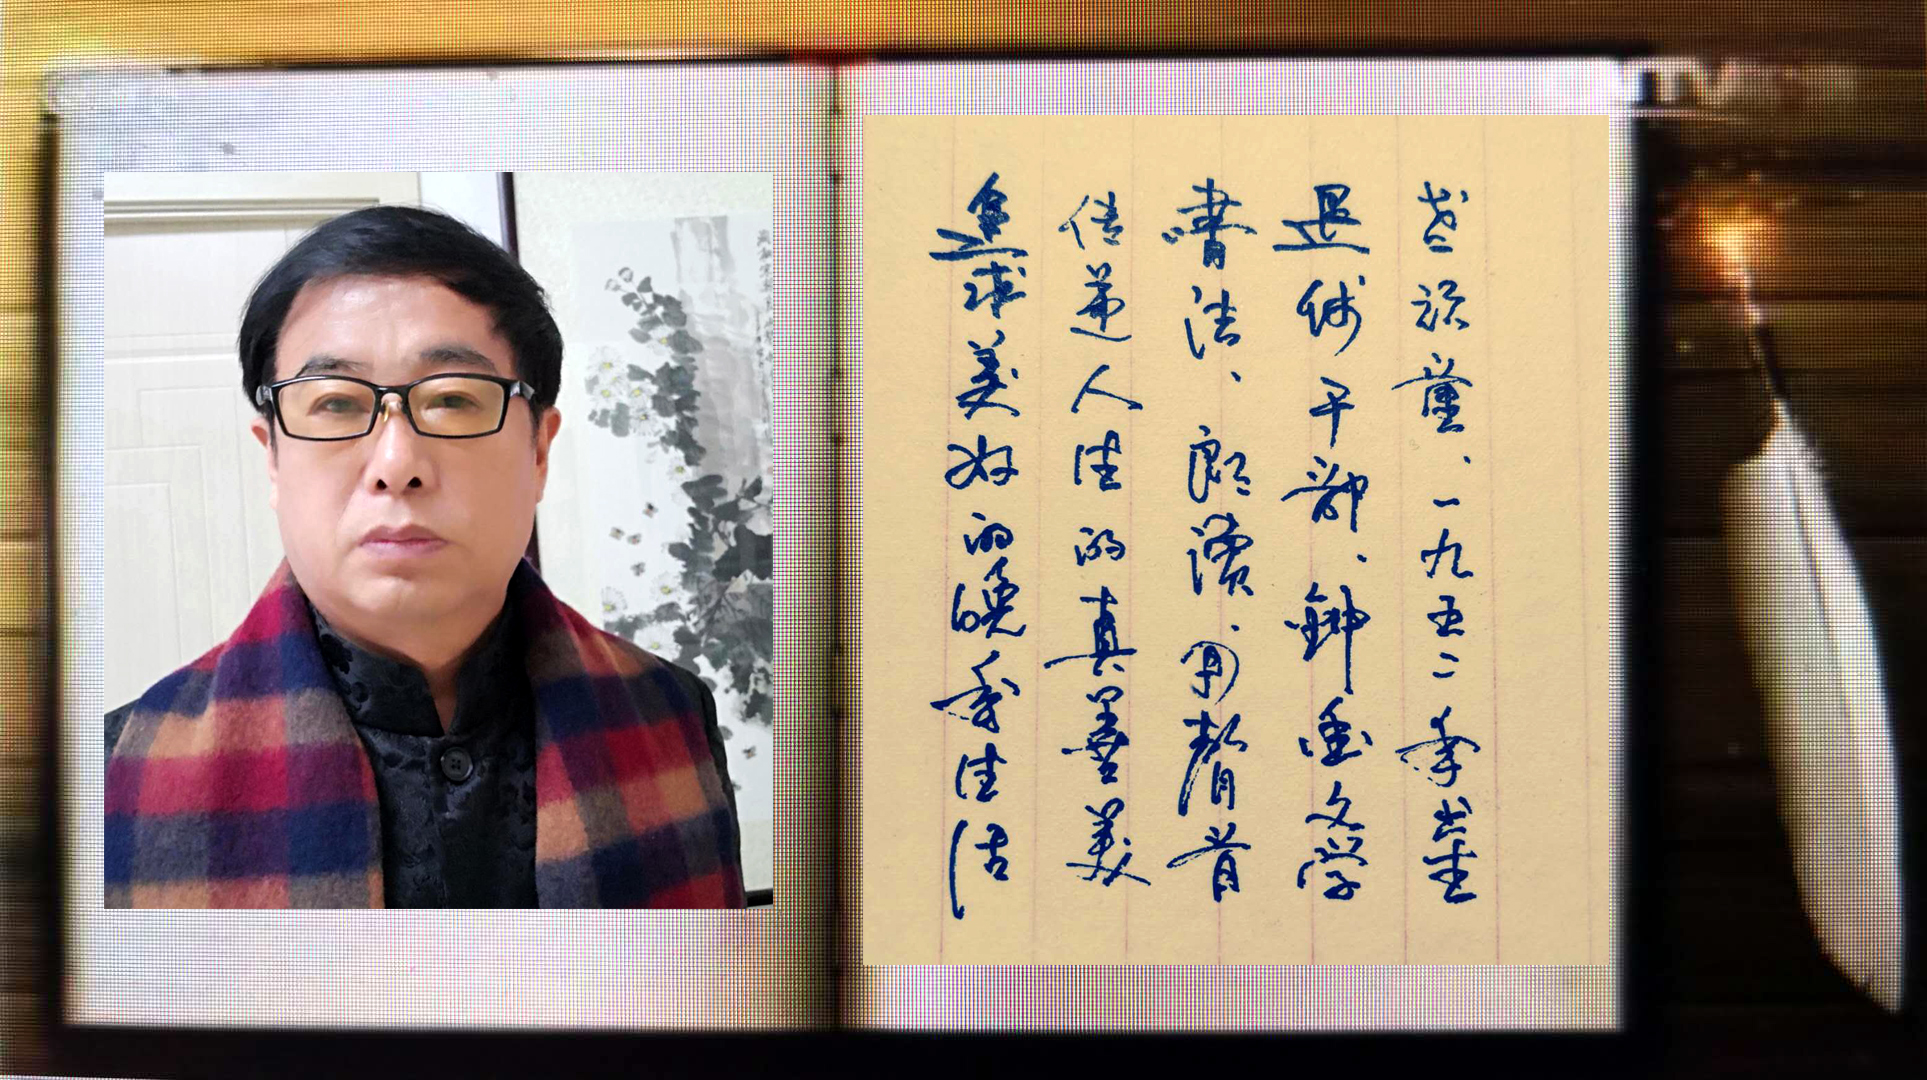 童、一九五二年出生
退 干部、钟爱文学
書法、朗读、用聲音
传递人生的真善美
追求美好的晚年生活
TV